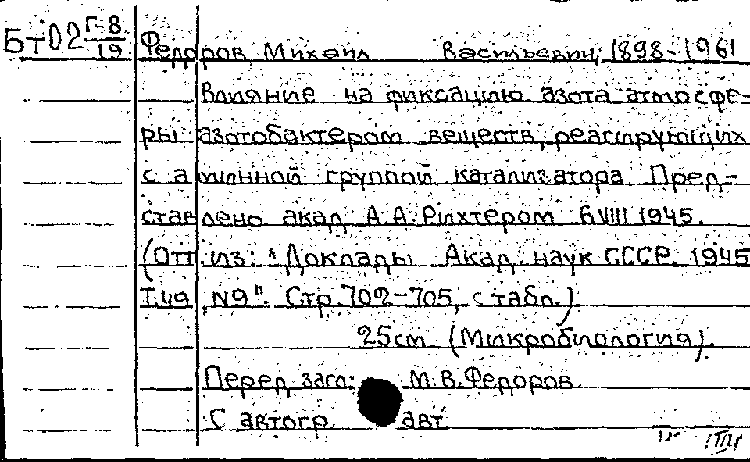 Бт02 Г-8/19 Федоров Михаил Васильевич, 1898-1961
Влияние на фиксацию азота атмосфе-
ры азотобактером веществ, реагирующих
с аминной группой катализатора. Пред-
ставлено акад. А.А.Рихтером 6.VIII 1945.
(Отт. из: "Доклады Акад. наук СССР. 1945
Т.49, №9". Стр. 702-705, с табл.)
25см (Микробиология).
Перед загл: М.В.Федоров
С автогр. авт